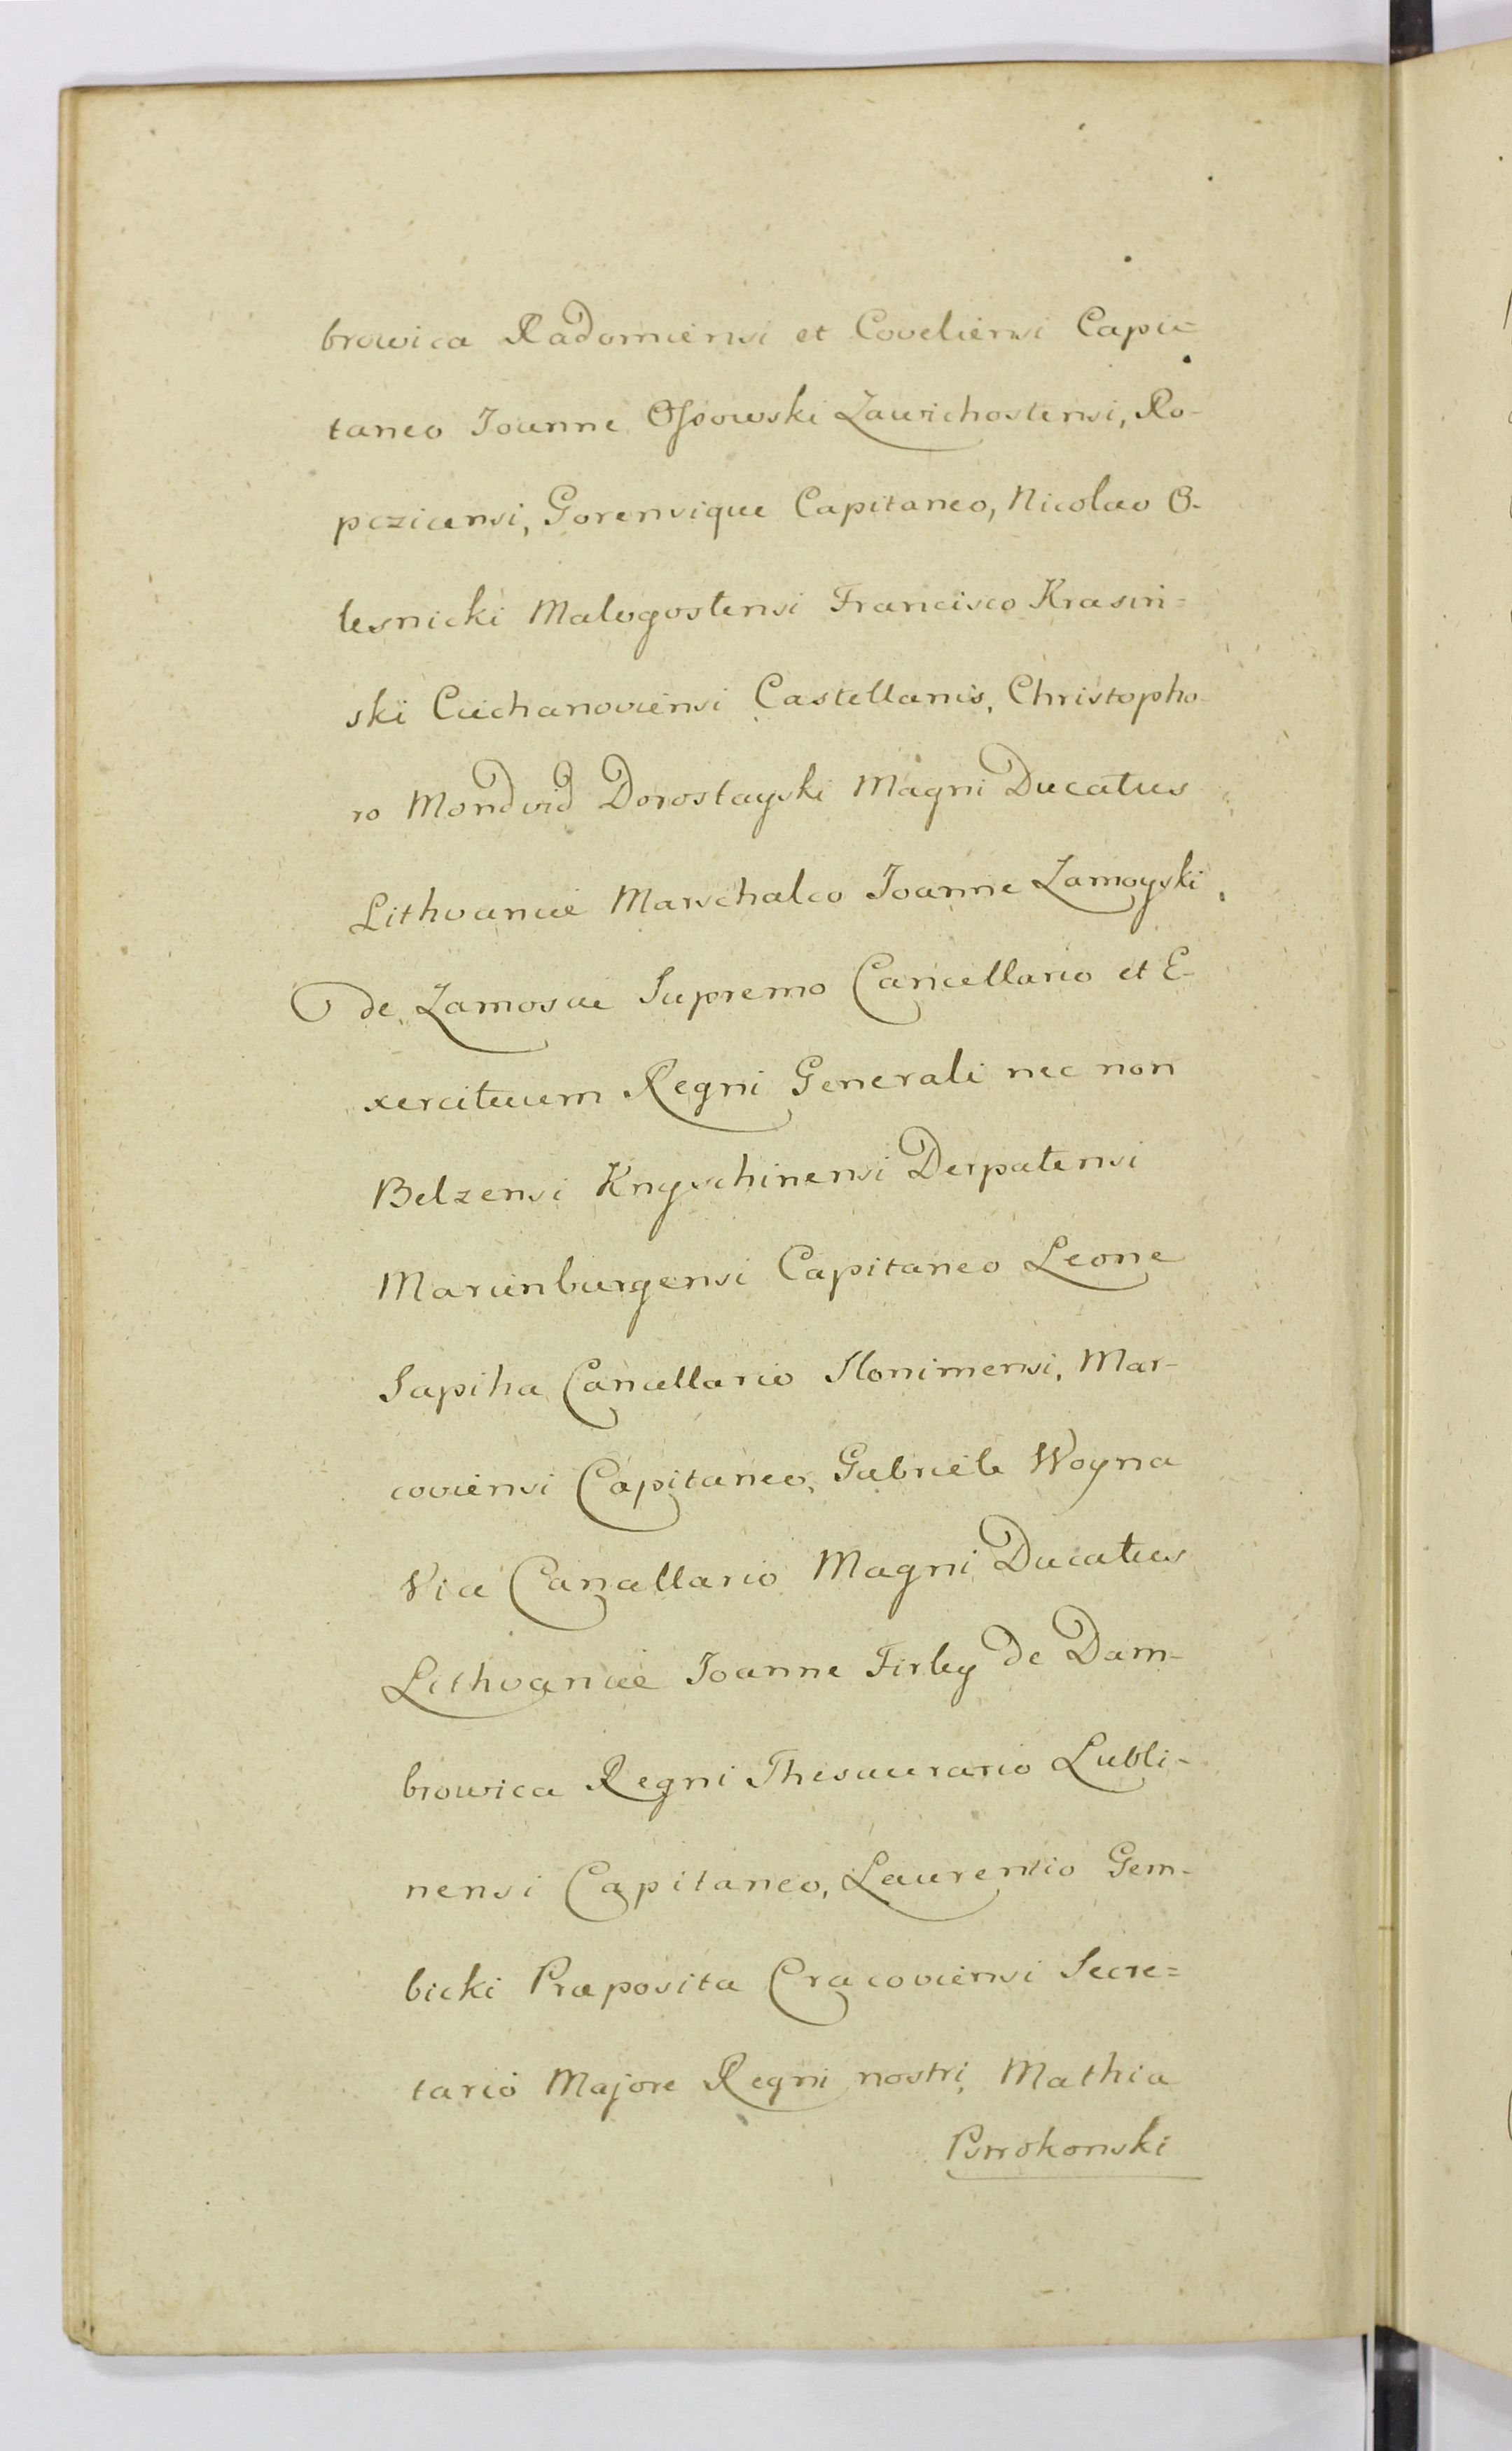 browica Radomiensi et Coveliensi Capi-
taneo Joanne Ossowski Zawichostensi, Ro-
pczicensi, Gorensique Capitaneo, Nicolao O-
lesnicki Malogostensi Francisco Krasin=
ski Ciechanoviensi Castellanis, Christopho-
ro Mondvid Dorostayski Magni Ducatus
Lithvaniae Marschalco Joanne Zamoyski
de Zamoscie Supremo Cancellario et E-
xercituum Regni Generali nec non
Belzensi Knyschinensi Derpatensi
Marienburgensi Capitaneo Leone
Sapiha Cancellario Slonimensi, Mar-
coviensi Capitaneo, Gabriele Woyna
Vice Cancellario Magni Ducatus
Lithvaniae Joanne Firley de Dam-
browica Regni Thesaurario Lubli-
nensi Capitaneo, Laurentio Gem-
bicki Praeposita Cracoviensi Secre=
tario Majore Regni nostri, Mathia
Pstrokonski